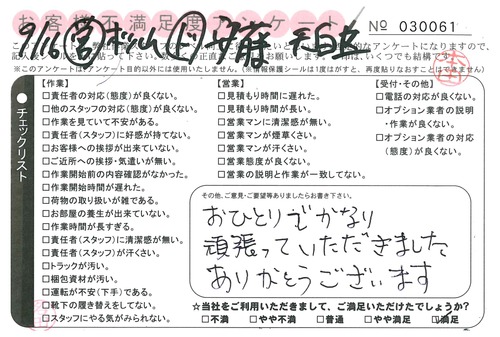 お客様不満足度アンケート
№ 030061
9/16
※このアンケートはアンケート目的以外には使用いたしません。(※情報保護シールは1度はがすと、再度貼りなおすことはできません)
チェックリスト
【作業】
□責任者の対応(態度)が良くない。
□他のスタッフの対応(態度)が良くない。
□作業を見ていて不安がある。
□責任者(スタッフ)に好感が持てない。
□お客様への挨拶が出来ていない。
□ご近所への挨拶・気遣いが無い。
□作業開始前の内容確認がなかった。
□作業開始時間が遅れた。
□荷物の取り扱いが雑である。
□お部屋の養生が出来ていない。
□作業時間が長すぎる。
□責任者(スタッフ)に清潔感が無い。
□責任者(スタッフ)が汗くさい。
□トラックが汚い。
□梱包資材が汚い。
□運転が不安(下手)である。
□靴下の履き替えをしてない。
□スタッフにやる気がみられない。
【営業】
□見積もり時間に遅れた。
□見積もり時間が長い。
□営業マンに清潔感が無い。
□営業マンが煙草くさい。
□営業マンが汗くさい。
□営業態度が良くない。
□営業の説明と作業が一致してない。
【受付・その他】
□電話の対応が良くない。
□オプション業者の説明
・作業が良くない。
□オプション業者の対応
(態度)が良くない。
その他、ご意見・ご要望等ありましたらお書き下さい。
おひとりでかなり
頑張っていただきました
ありがとうございます
☆当社をご利用いただきまして、ご満足いただけたでしょうか?
□不満 □やや不満 □普通 □やや満足 □満足